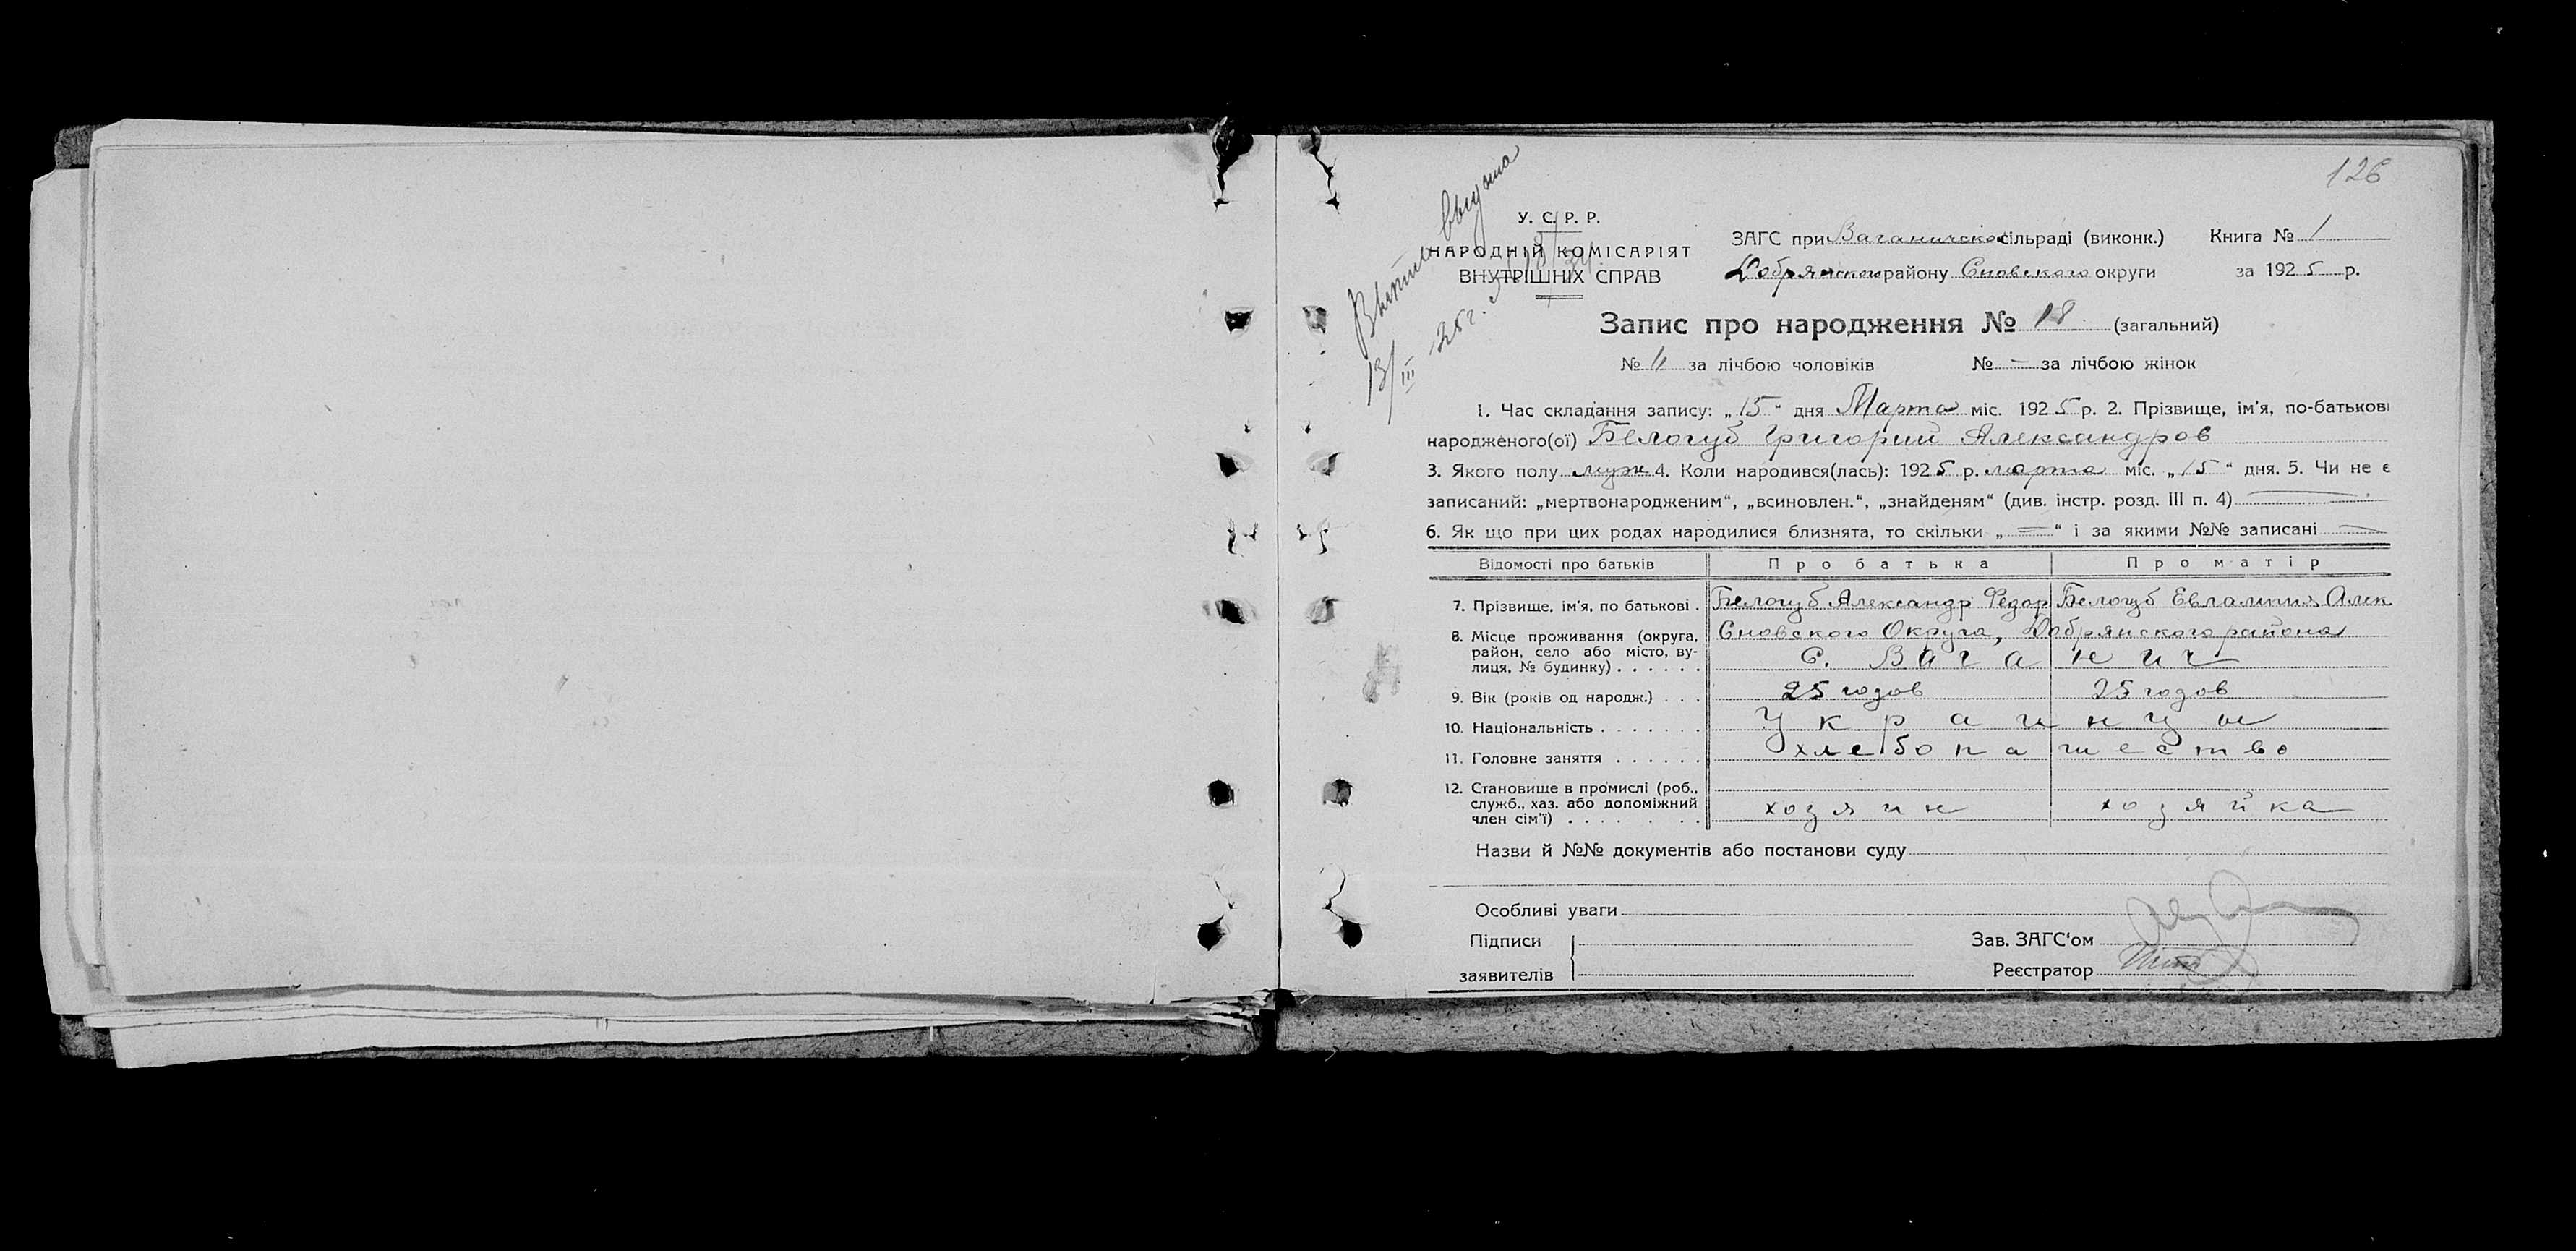 126
Выпись выдана
13/III 25 г.
У. С. Р. Р.
НАРОДНІЙ КОМІСАРІЯТ
ВНУТРІШНІХ СПРАВ
ЗАГС при Ваганичской сільраді (виконк.) Книга № 1
Добрянского району Сновского округи за 1925 р.
Запис про народження № 18 (загальний)
№ 11 за лічбою чоловіків № — за лічбою жінок
1. Час складання запису: „15“ дня Марта міс. 1925 р. 2. Прізвище, ім'я, по-батькові
народженого(ої) Белогуб Григорий Александров
3. Якого полу муж 4. Коли народився(лась): 1925 р. марта міс. „15“ дня. 5. Чи не є
записаний: „мертвонародженим“, „всиновлен.“, „знайденям“ (див. інстр. розд. III п. 4) —
6. Як що при цих родах народилися близнята, то скільки „—“ і за якими №№ записані —
Відомості про батьків Про батька Про матір
7. Прізвище, ім'я, по батькові . Белогуб Александр Федор Белогуб Евлампия Алек
8. Місце проживання (округа, Сновского Округа, Добрянского района
район, село або місто, ву-
лиця, № будинку) . . . . . . С. Ваганич
9. Вік (років од народж.) . . . 25 годов 25 годов
10. Національність . . . . . . . Украинцы
11. Головне заняття . . . . . . хлебопашество
12. Становище в промислі (роб.,
служб., хаз. або допоміжний
член сім'ї) . . . . . . . хозяин хозяйка
Назви й №№ документів або постанови суду
Особливі уваги
Підписи
заявителів
Зав. ЗАГС'ом
Реєстратор